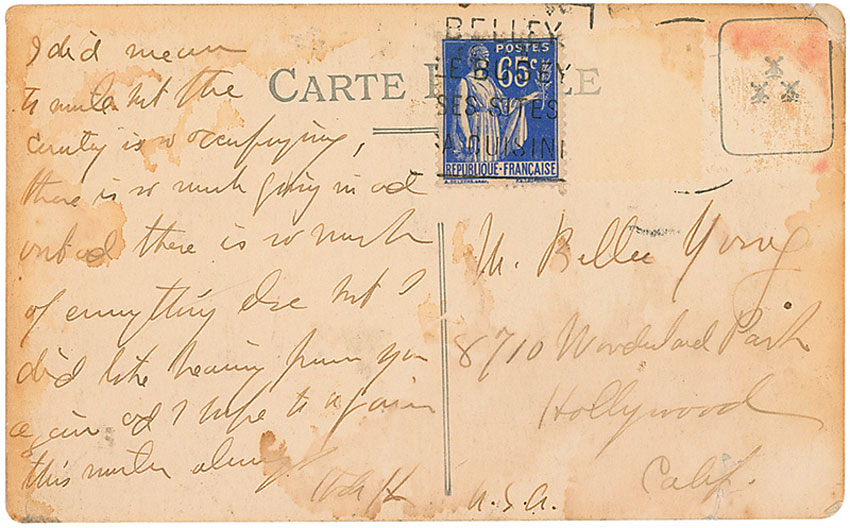 I did mean
to write but the
country is so occupying,
there is so much going in and
out and there is so much
of everything else but I
did like hearing from you
again and I hope to again
this
CARTE
BELLEY
LE BUGEY
SES SITES
SA CUISINE
POSTES
65c
REPUBLIQUE-FRANÇAISE
M. Young
8710 Wonderland Park
Hollywood
Calif.
U.S.A.